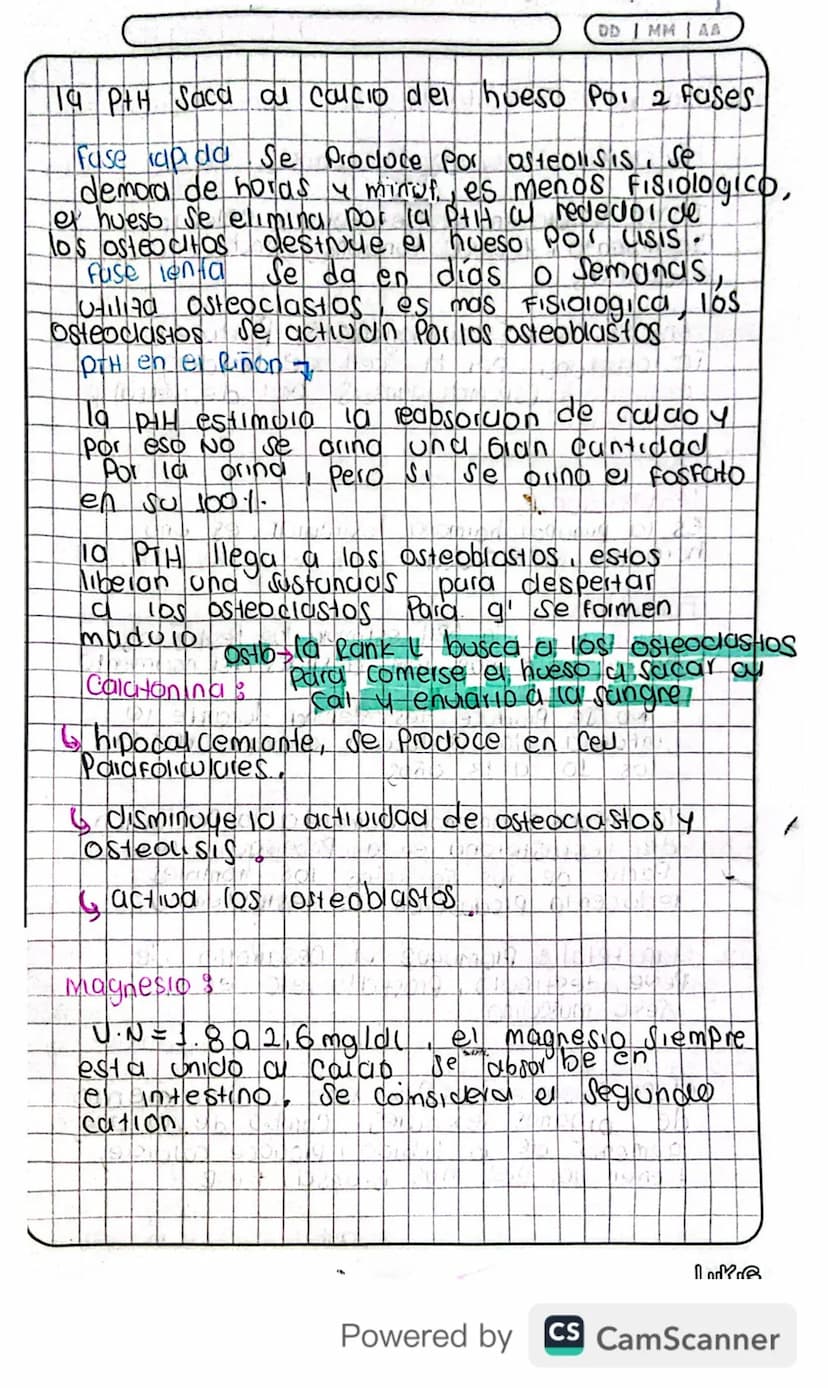 DD | MM | AA
la PtH Saca al calcio del hueso Por 2 fases
fase rapida Se Produce por osteolisis, se
demora de horas y minut, es menos Fisiologico,
el hueso se elimina por la PtH al rededor de
los osteocitos destruye el hueso Por lisis.
fase lenta Se da en días o Semanas,
utiliza osteoclastos, es mas Fisiologica, los
osteoclastos se activan Por los osteoblastos
PTH en el Riñon
la PtH estimula la reabsorcion de calcio y
por eso NO se orina una Gran Cantidad
Por la orina, pero si se orina el FosFato
en su 100%.
la PTH llega a los osteoblastos, estos
liberan una sustancias para despertar
a los osteoclastos Para q' se formen
maduro
ostb→la Rank L busca a los osteoclastos
para comerse el hueso y sacar al
cal y enviarlo a la sangre
Calcitonina:
↳ hipocalcemiante, se Produce en Cel
ParaFoliculares.
↳ disminuye la actividad de osteoclastos y
osteolisis.
↳ activa los osteoblastos.
Magnesio:
V.N = 1.8 a 2,6 mg/dl, el magnesio Siempre
esta unido al calcio se absorbe en
el intestino. Se considera el Segundo
cation
Powered by CS CamScanner